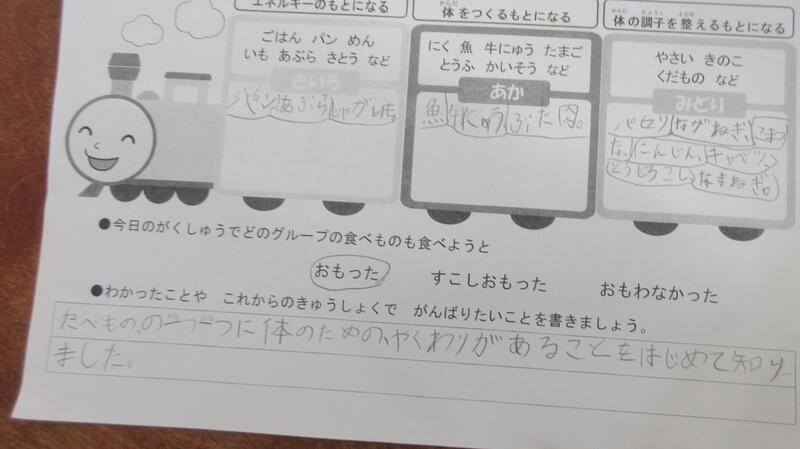 エネルギーのもとになる
体をつくるもとになる
体の調子を整えるもとになる
ごはん パン めん
いも あぶら さとう など
きいろ
パン あぶら じゃがいも。
にく 魚 牛にゅう たまご
とうふ かいそう など
あか
魚 牛にゅう ぶた肉。
やさい きのこ
くだもの など
みどり
パセリ ながねぎ こまつ
な、にんじん、キャベツ、
とうもろこし たまねぎ。
●今日のがくしゅうでどのグループの食べものも食べようと
おもった すこしおもった おもわなかった
●わかったことや これからのきゅうしょくで がんばりたいことを書きましょう。
たべもの、の一つ一つに体のための、やくわりがあることをはじめて知り
ました。